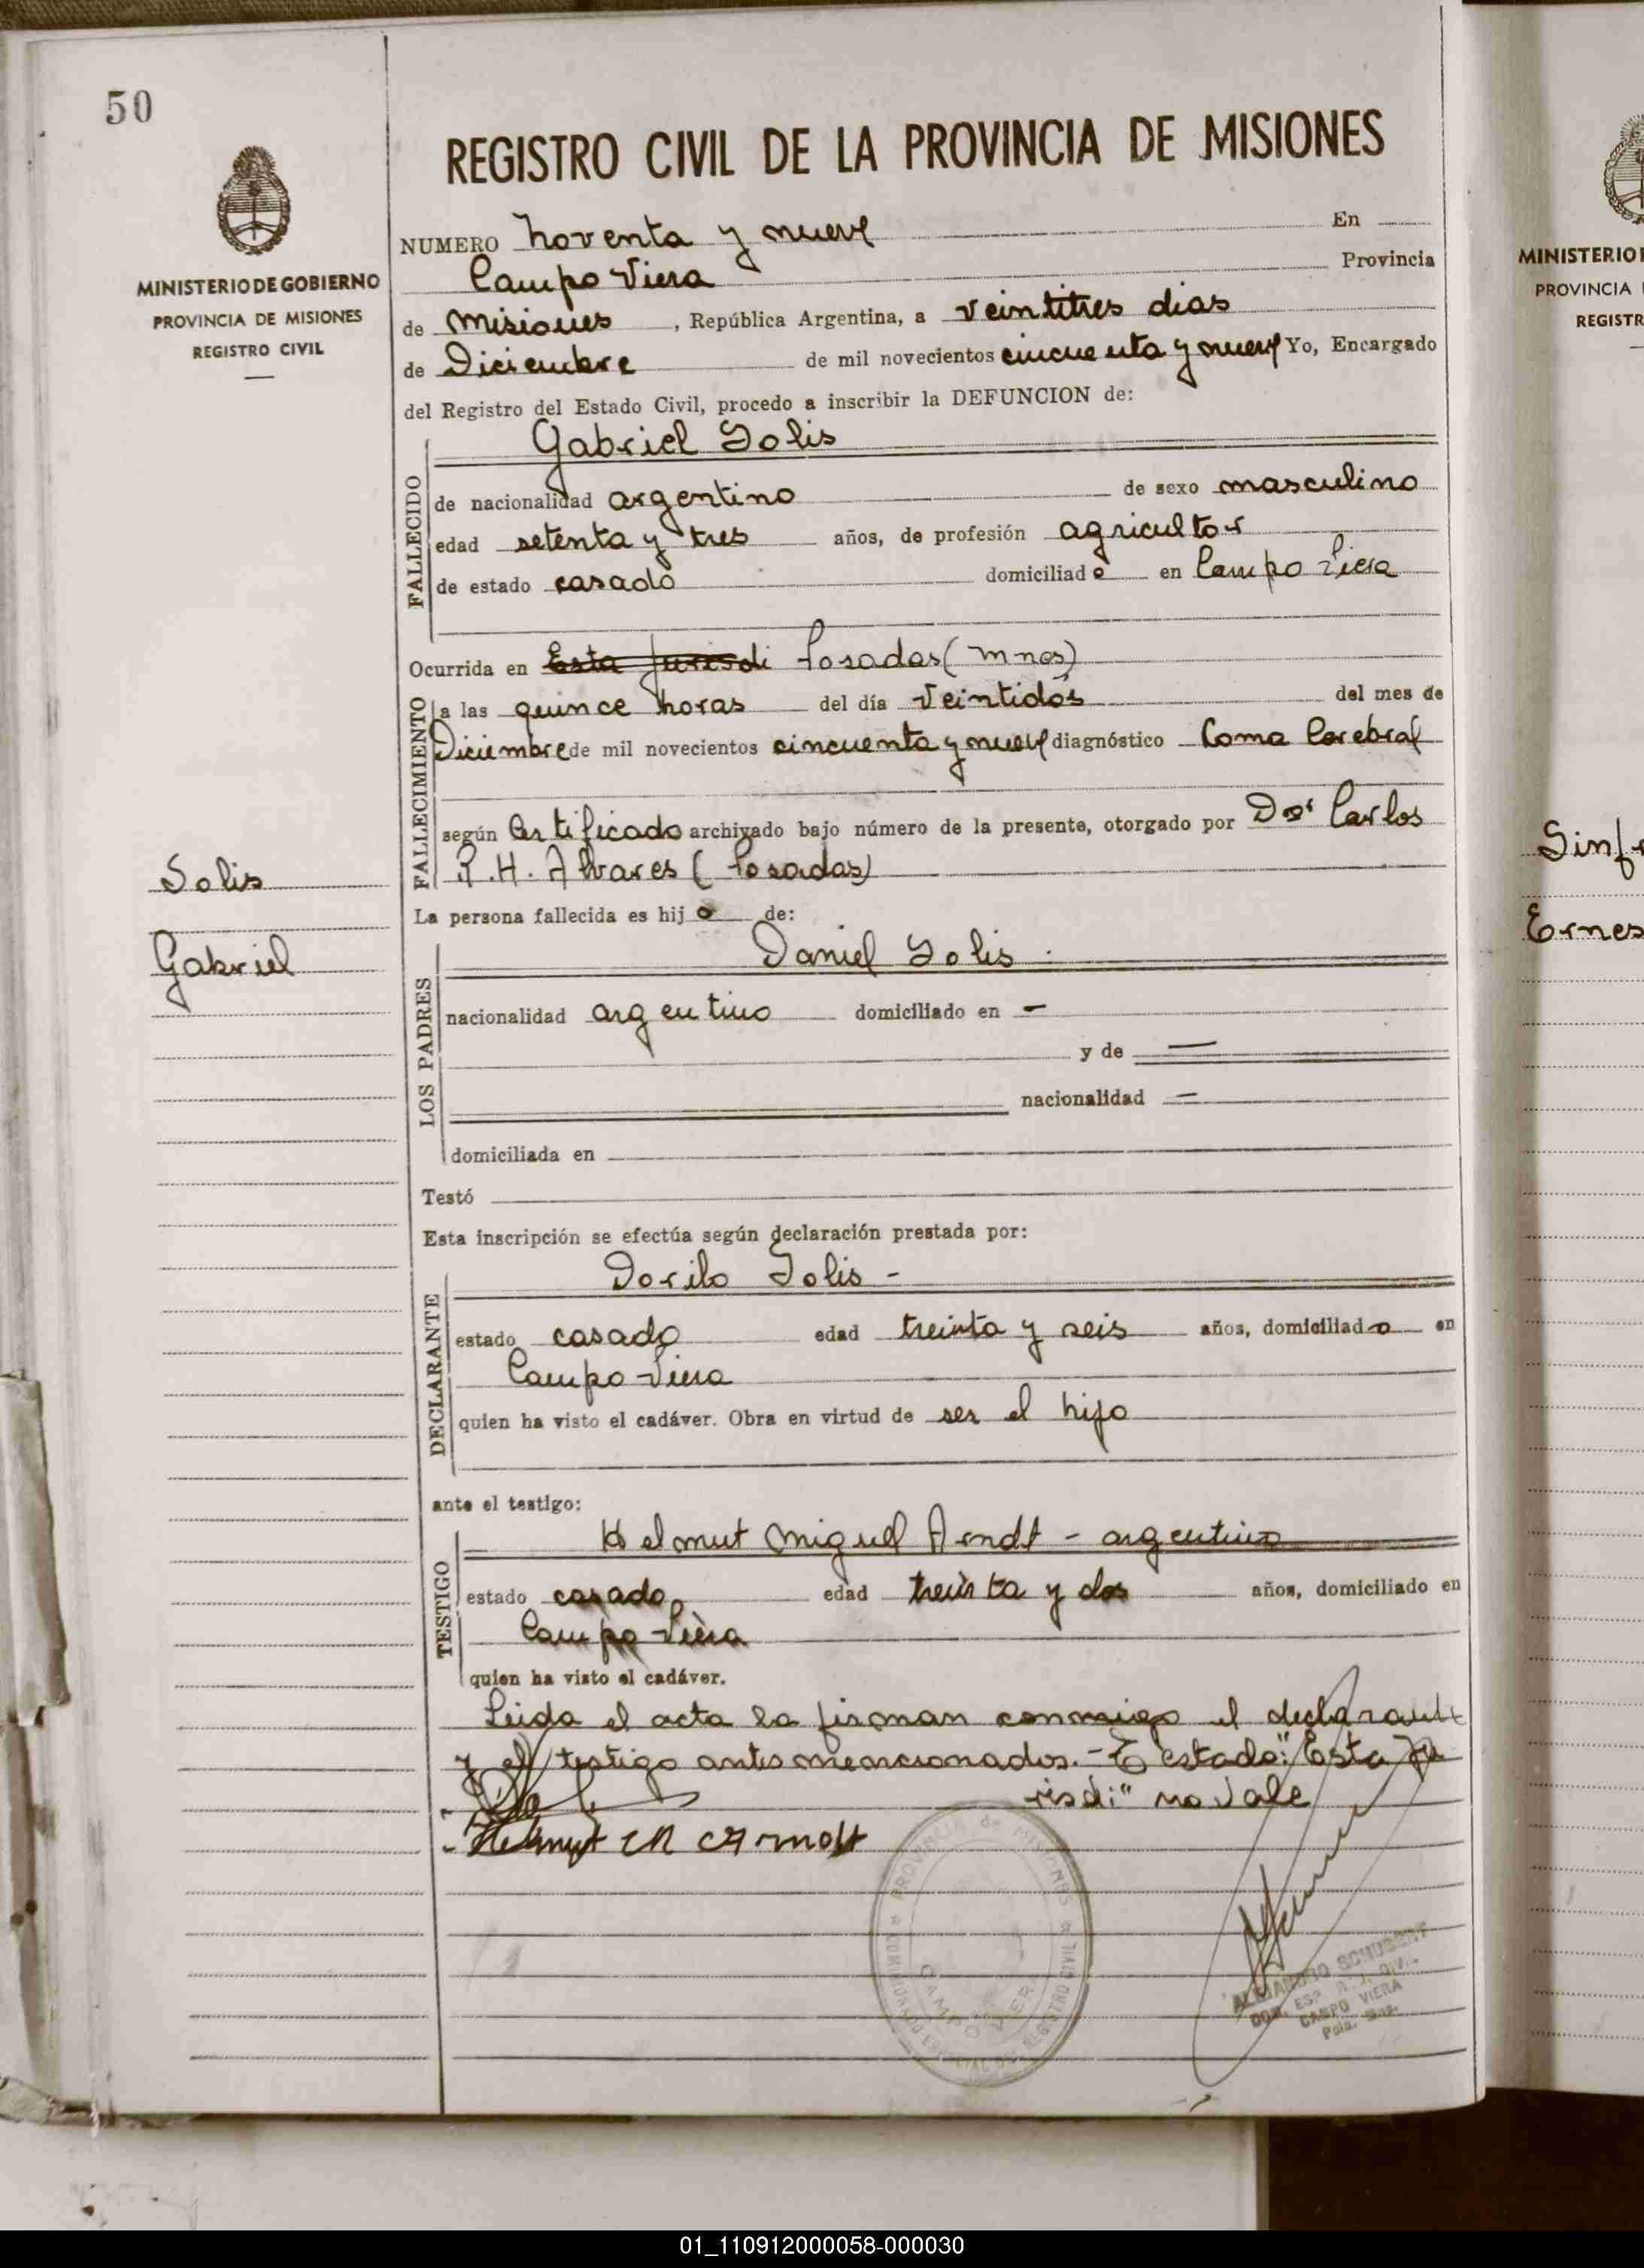 50
MINISTERIO DE GOBIERNO
PROVINCIA DE MISIONES
REGISTRO CIVIL
REGISTRO CIVIL DE LA PROVINCIA DE MISIONES
NUMERO Noventa y nueve En
Campo Viera Provincia
de Misiones, República Argentina, a veintitres dias
de Diciembre de mil novecientos cincuenta y nueve Yo, Encargado
del Registro del Estado Civil, procedo a inscribir la DEFUNCION de:
FALLECIDO
Gabriel Solis
de nacionalidad argentino de sexo masculino
edad setenta y tres años, de profesión agricultor
de estado casado domiciliado en Campo Viera
Ocurrida en Esta jurisdi Posadas (Mnes)
FALLECIMIENTO
a las quince horas del día Veintidós del mes de
Diciembre de mil novecientos cincuenta y nueve diagnóstico Coma Cerebral
según Certificado archivado bajo número de la presente, otorgado por Dor Carlos
R. H. Alvares (Posadas)
Solis
Gabriel
La persona fallecida es hijo de:
LOS PADRES
Daniel Solis
nacionalidad argentino domiciliado en —
y de —
nacionalidad —
domiciliada en
Testó
Esta inscripción se efectúa según declaración prestada por:
DECLARANTE
Dorilo Solis -
estado casado edad treinta y seis años, domiciliado en
Campo Viera
quien ha visto el cadáver. Obra en virtud de ser el hijo
ante el testigo:
TESTIGO
Helmut Miguel Arndt - argentino
estado casado edad treinta y dos años, domiciliado en
Campo Viera
quien ha visto el cadáver.
Leida el acta la firman conmigo el declarante
y el testigo antes mencionados. - E estado: "Esta ju
risdi" no vale
Helmut M Arndt
PROVINCIA de MISIONES
CAMPO VIERA
ALEJANDRO SCHUBERT
CAMPO VIERA
MINISTERIO
PROVINCIA
REGISTR
Sinf
Ernes
01_110912000058-000030